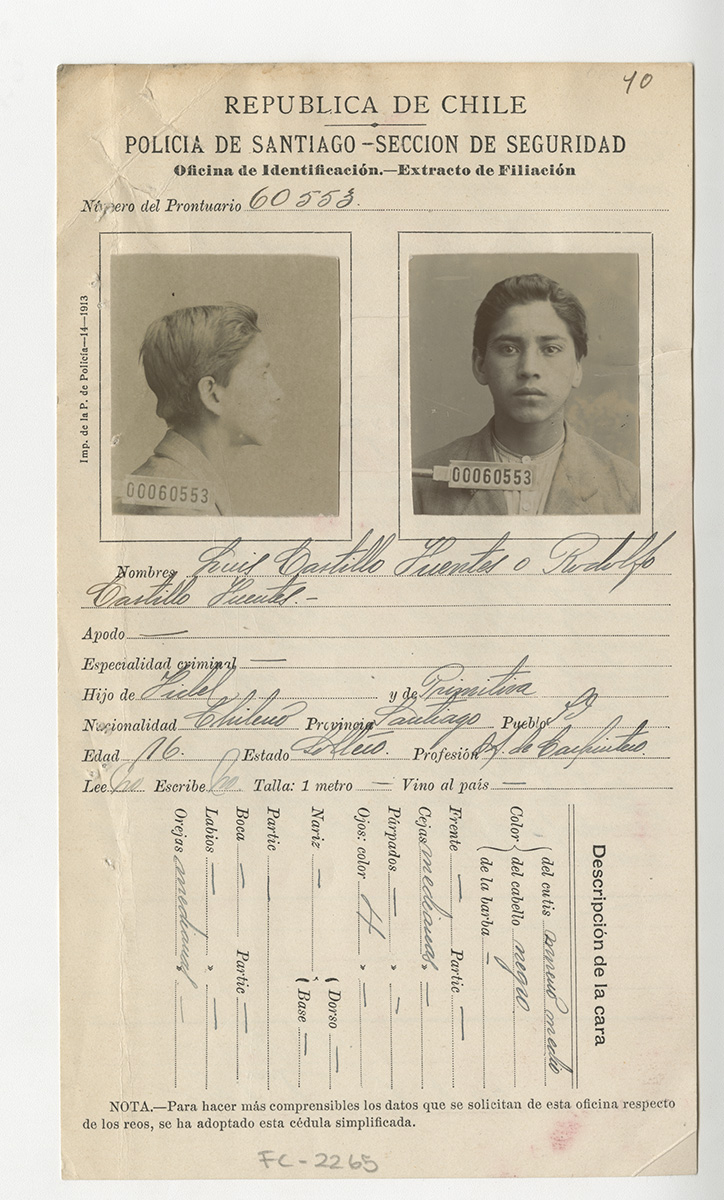 10
REPUBLICA DE CHILE
POLICIA DE SANTIAGO - SECCION DE SEGURIDAD
Oficina de Identificación.—Extracto de Filiación
Número del Prontuario 60553.
Imp. de la P. de Policía—14—1913
00060553
00060553
Nombres Luis Castillo Fuentes o Rodolfo
Castillo Fuentes.-
Apodo —
Especialidad criminal —
Hijo de Fidel y de Primitiva
Nacionalidad Chileno Provincia Santiago Pueblo Id
Edad 16. Estado Soltero. Profesión de Carpintero.
Lee no Escribe no Talla: 1 metro — Vino al país —
Descripción de la cara
Color del cutis moreno medio
del cabello negro
de la barba —
Frente — Partic —
Cejas medianas » —
Párpados — » —
Ojos: color 4 » —
Nariz — Dorso —
Base —
Partic —
Boca — Partic —
Labios — » —
Orejas medianas —
NOTA.—Para hacer más comprensibles los datos que se solicitan de esta oficina respecto
de los reos, se ha adoptado esta cédula simplificada.
FC-2265